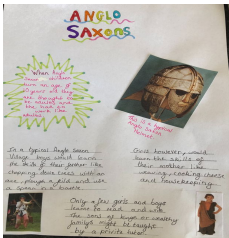 ANGLO
SAXONS
When Anglo
Saxon children
turn an age of
10 years old they
are thought to
be adults and
work like
adults.
This is a typical
Anglo Saxon
helmet
In a typical Anglo Saxon
Village boys would learn
the skills of their father like
chopping down trees with an
axe, plough a field and use
a spear in a battle.
Girls however, would
learn the skills of
their mother like
weaving, cooking, cheese
and housekeeping.
Only a few girls and boys
learnt to read and write
The sons of kings or wealthy
family's might be taught
by a private tutor